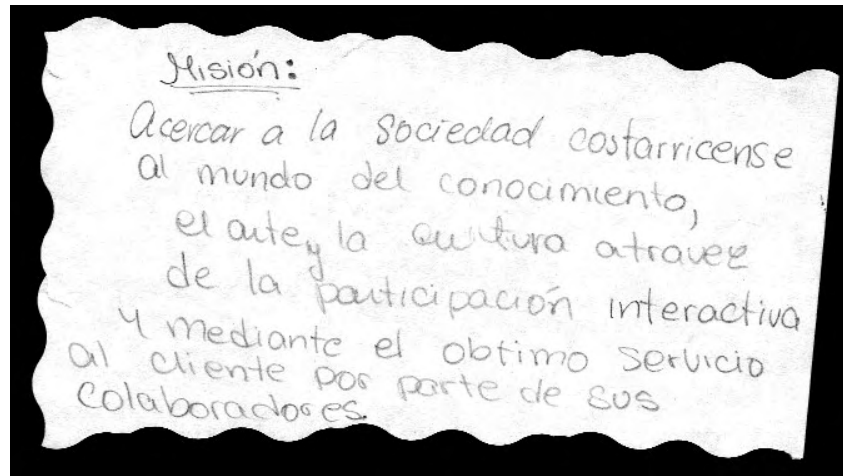 Misión:
Acercar a la sociedad costarricense
al mundo del conocimiento,
el arte, y la cultura atravez
de la participación interactiva
y mediante el obtimo servicio
al cliente por parte de sus
colaboradores.